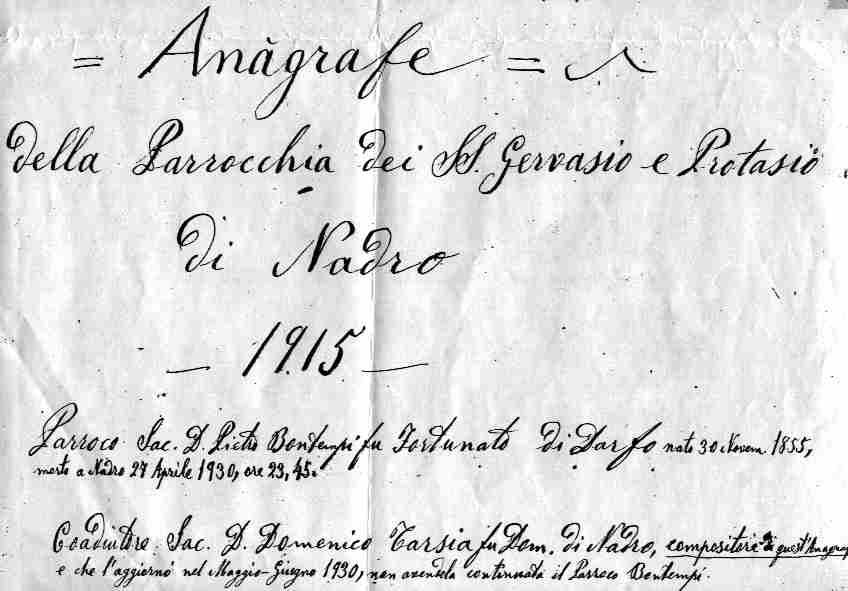 = Anàgrafe =
della Parrocchia dei SS. Gervasio e Protasio
di Nadro
— 1915 —
Parroco Sac. D. Pietro Bontempi fu Fortunato di Darfo nato 30 Novem. 1855,
morto a Nadro 27 Aprile 1930, ore 23,45.
Coadiutore Sac. D. Domenico Tarsia fu Dom. di Nadro, compositore di quest'Anagraf
e che l'aggiornò nel Maggio-Giugno 1930, non avendola continuata il Parroco Bontempi.